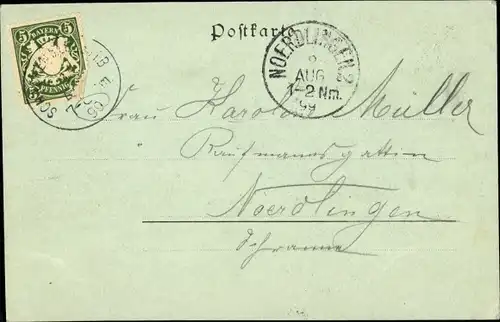 Postkarte
BAYERN
5 5
PFENNIG
NOERDLINGEN 2
AUG
1-2 Nm.
99
Frau Karolin Müller
Kaufmannsgattin
Noerdlingen
Schranne